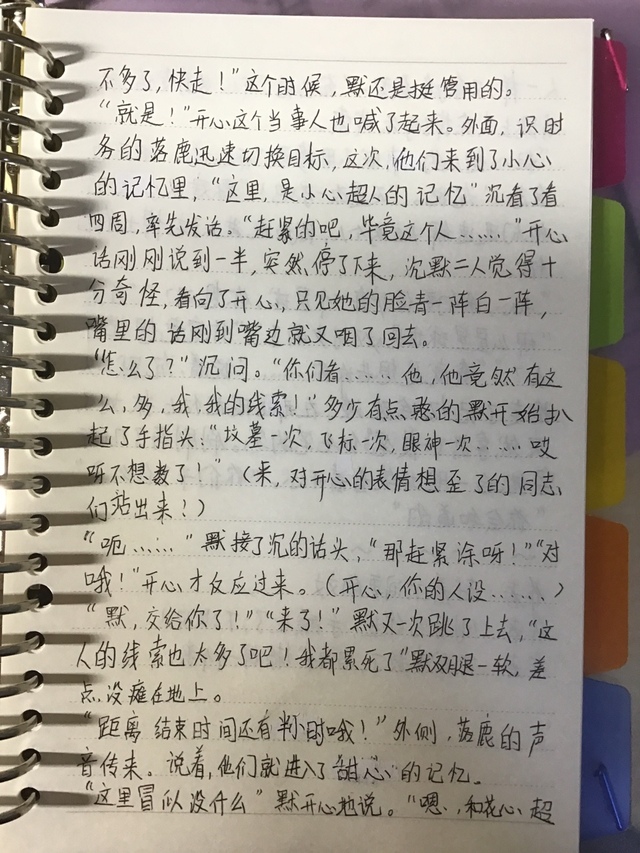 不多了，快走！”这个时候，默还是挺管用的。
“就是！”开心这个当事人也喊了起来。外面，识时
务的落鹿迅速切换目标，这次，他们来到了小心
的记忆里，“这里，是小心超人的记忆”沉看了看
四周，率先发话。“赶紧的吧，毕竟这个人……”开心
话刚刚说到一半，突然停了下来，沉默二人觉得十
分奇怪，看向了开心，只见她的脸青一阵白一阵，
嘴里的话刚到嘴边就又咽了回去。
“怎么了？”沉问。“你们看……他，他竟然有这
么，多，我，我的线索！”多少有点憨的默开始扒
起了手指头：“坟墓一次，飞标一次，眼神一次……哎
呀不想数了！”（来，对开心的表情想歪了的同志
们站出来！）
“呃……”默接了沉的话头，“那赶紧涂呀！”“对
哦！”开心才反应过来。（开心，你的人设……）
“默，交给你了！”“来了！”默又一次跳了上去，“这
人的线索也太多了吧！我都累死了”默双腿一软，差
点没瘫在地上。
“距离结束时间还有半小时哦！”外侧，落鹿的声
音传来。说着，他们就进入了甜心的记忆。
“这里冒似没什么”默开心地说。“嗯，和花心超